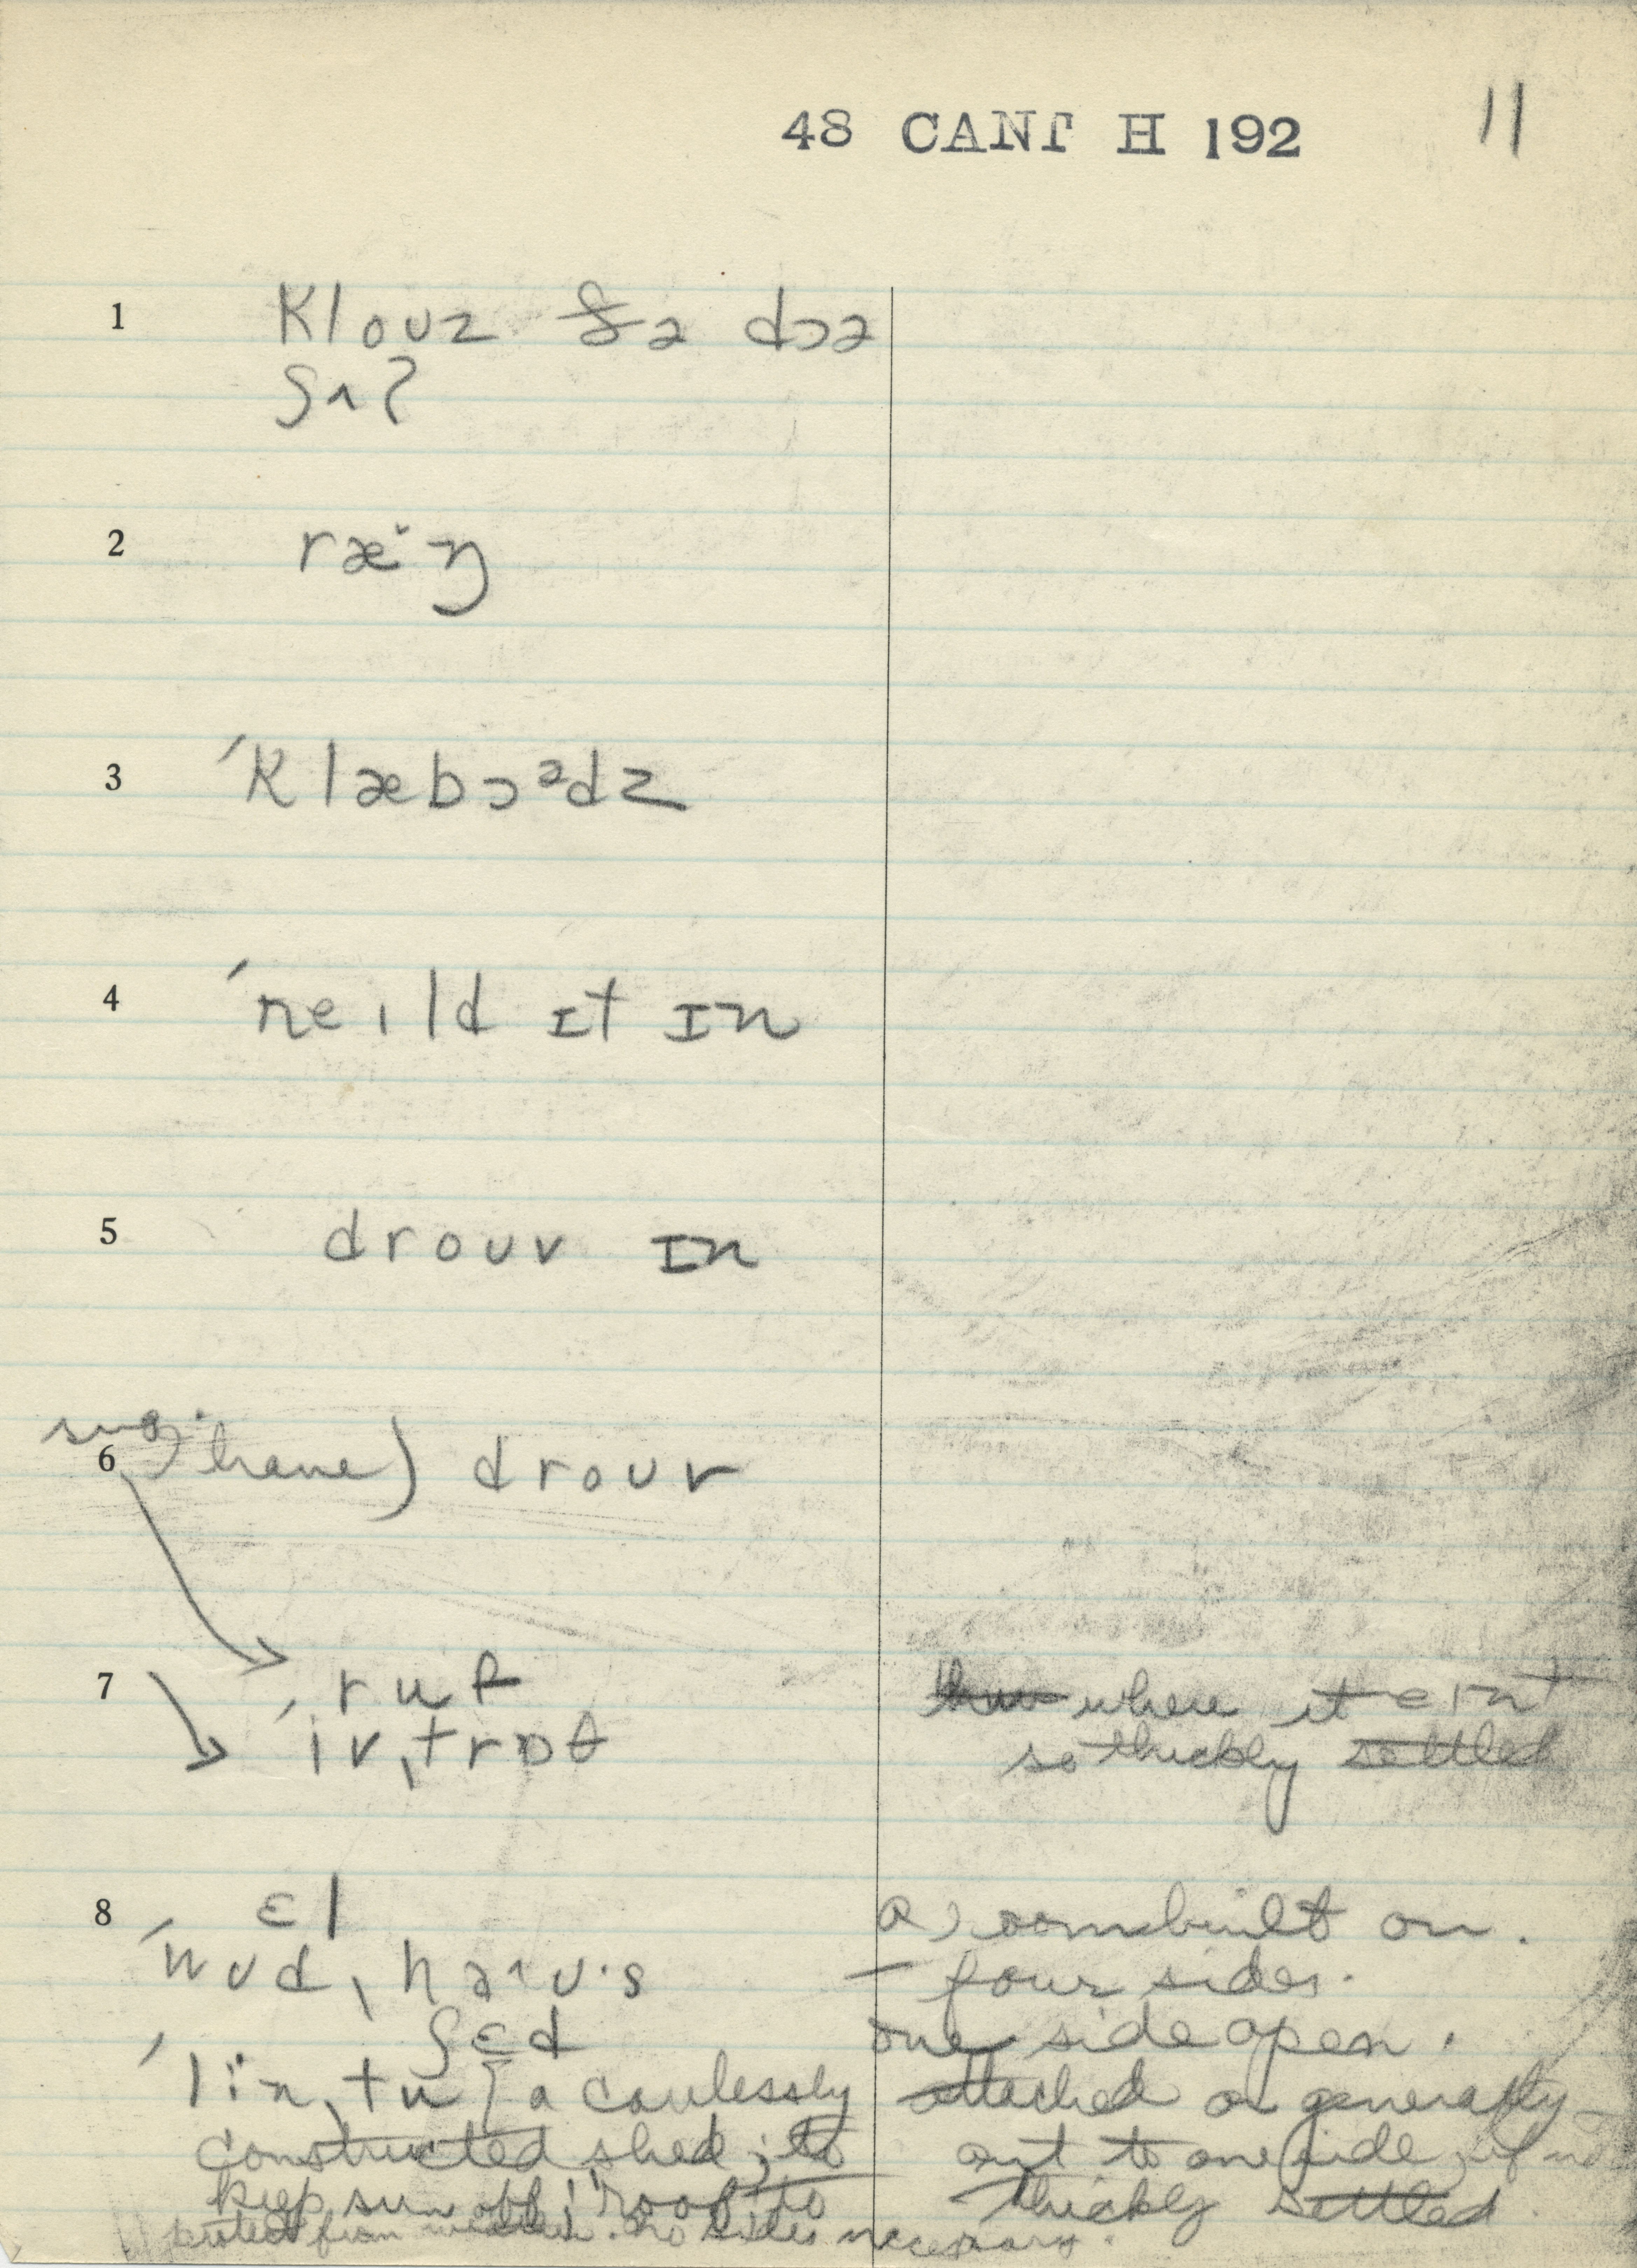 48 CANT H 192 11
1 Klouz ðə dɔə
ʃʌt
2 ræˑŋ
3 ˊKlæbɔᵊdz
4 ˊneɪld ɪt ɪn
5 drouv ɪn
sug.
6 have) drouv
7 ruf
ˊiv,trɒθ
where it eɪnt
so thickly settled
8 ɛl a room built on.
ˊwud,haʌuˑs – four sides.
ʃɛd one side open.
ˊliˑn,tu [a carelessly attached or generally
constructed shed; to out to one side, if not
keep sun off; roof to thickly settled.
protect from weather. no sides necessary.